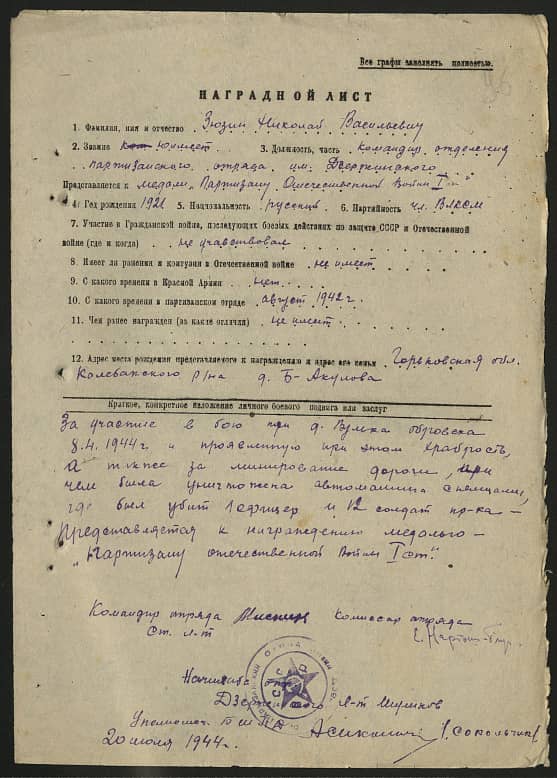 Все графы заполнять полностью.
НАГРАДНОЙ ЛИСТ
1. Фамилия, имя и отчество Зюзин Николай Васильевич
2. Звание не имеет 3. Должность, часть командир отделения
партизанского отряда им. Дзержинского
Представляется к медали "Партизану Отечественной Войны I ст"
4. Год рождения 1921 5. Национальность русский 6. Партийность чл. ВЛКСМ
7. Участие в Гражданской войне, последующих боевых действиях по защите СССР и Отечественной
войне (где и когда) не участвовал
8. Имеет ли ранения и контузии в Отечественной войне не имеет
9. С какого времени в Красной Армии нет
10. С какого времени в партизанском отряде август 1942 г.
11. Чем ранее награжден (за какие отличия) не имеет
12. Адрес места рождения представляемого к награждению и адрес его семьи Горьковская обл.
р/на д. Б-Акулова
Краткое, конкретное изложение личного боевого подвига или заслуг
За участие в бою при д.
8.4.1944 г. и проявленную при этом храбрость,
а также за минирование дороги, при
чем была уничтожена автомашина с немцами,
где был убит 1 офицер и 12 солдат пр-ка –
Представляется к награждению медалью –
"Партизану отечественной Войны I ст."
Командир отряда Комиссар отряда
Ст. л-т
Дзержинского л-т
Уполномоч. БШПД
20 июля 1944 г.